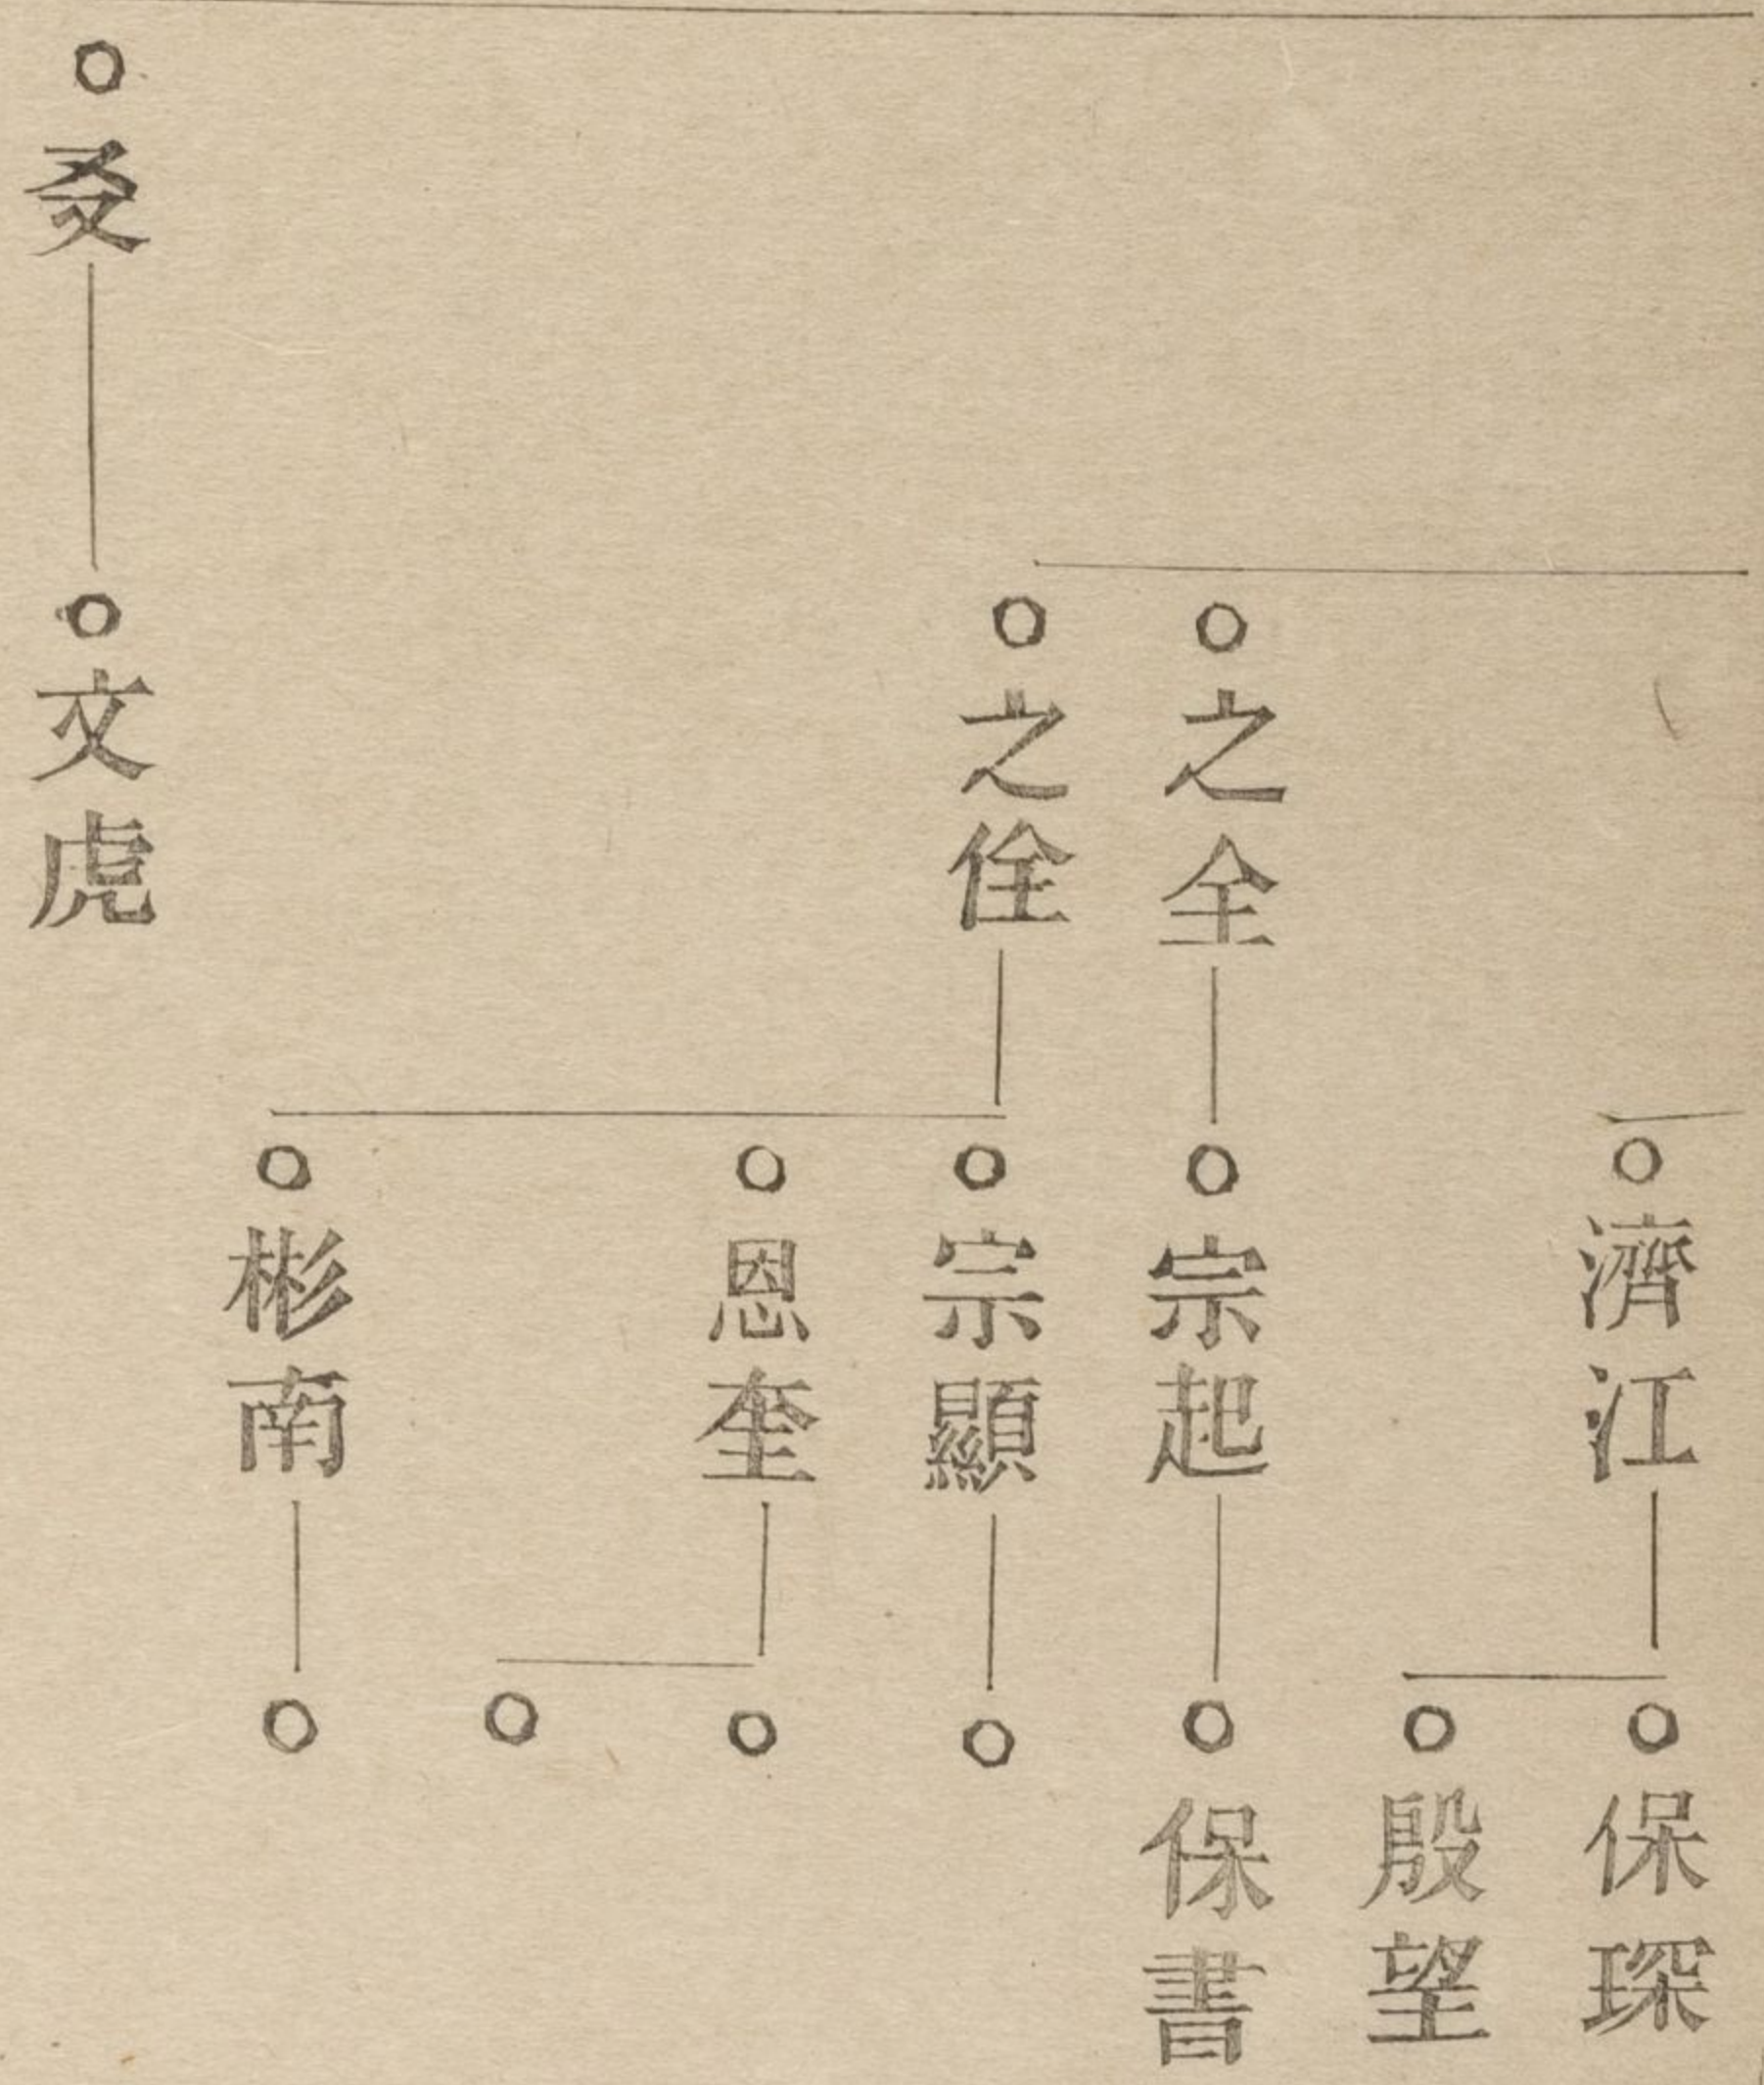 濟江
保琛
殷望
之全
宗起
保書
之佺
宗顯
恩奎
彬南
文虎